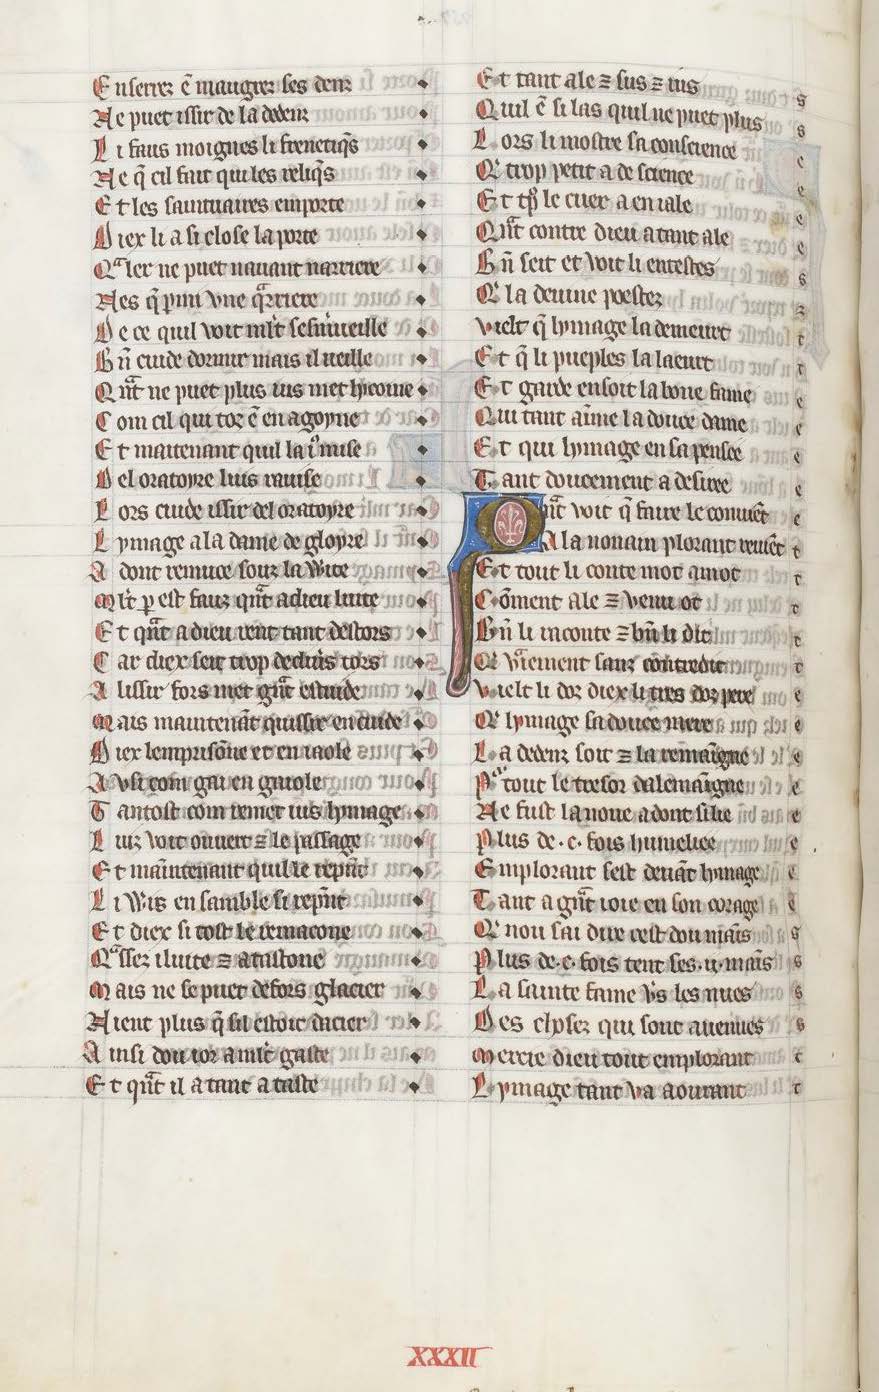 Enserrez ē maugrez ses denz
Ne puet issir de la dedenz
Li faus moignes li freneticq̄s
Ne q̄ cil fait qui les reliq̄s
Et les saintuaires emporte
Diex li a si close la porte
Qaler ne puet nauant narriere
Nes q̄ pmi vne q̄rriere
De ce quil voit ml't sesmueille
Bn̄ cuide dormir mais il ueille
Qn̄t ne puet plus ius met lycome
Com cil qui toz ē en agoyne
Et maitenant quil la ius mise
Del oratoyre luis rauise
Lors cuide issir del oratoyre
Lymage a la dame de gloyre
A dont remuce souz la wite
Ml't p est fauz qn̄t a dieu luite
Et qn̄t a dieu rent tant destors
Car diex seit trop de diuīs tors
A lissir fors met gn̄t estuide
Mais maintenāt quissir en cuide
Diex lemprisōne et en iaole
Ausi com gai en gaiole
Tantost com remet ius lymage
Luiz voit ouuert ⁊ le passage
Et maīntenant quil le repn̄t
Li wis ensamble si repn̄t
Et diex si tost le remacone
Qassez iluite ⁊ atastone
Mais ne se puet defors glacier
Nient plus q̄ sil estoit dacier
Ainsi dou ior a ml't gaste
Et qn̄t il a tant a taste
Et tant ale ⁊ sus ⁊ ius
Quil ē si las quil ne puet plus
Lors li mostre sa conscience
Q' trop petit a de science
Et tp̄ le cuer a en iale
Qn̄t contre dieu a tant ale
Bn̄ seit et voit li entestes
Q' la deuine poestez
Vielt q̄ lymage la demeurt
Et q̄ li pueples la laeurt
Et garde en soit la bone fame
Qui tant aīme la douce dame
Et qui lymage en sa pensee
Tant doucement a desiree
Qn̄t voit q̄ faire le conuiēt
A la nonain plorant reuiēt
Et tout li conte mot a mot
Cōment ale ⁊ venu ot
Bn̄ li raconte ⁊ bn̄ li dit
Q' vraiement sanz contredit
Vielt li doz diex li tres doz pere
Q' lymage sa douce mere
La dedenz soit ⁊ la remaīgne
Por tout le tresor dalemaīgne
Ne fust la noue a dont si lie
Plus de .c. fois humeliee
Emplorant sest deuāt lymage
Tant a gn̄t ioie en son corage
Q' nou sai dire cest dou maīs
Plus de .c. fois tent ses .ii. maīs
La sainte fame vs les nues
Des choses qui sont auenues
Mercie dieu tout emplorant
Lymage tant va aourant
XXXII